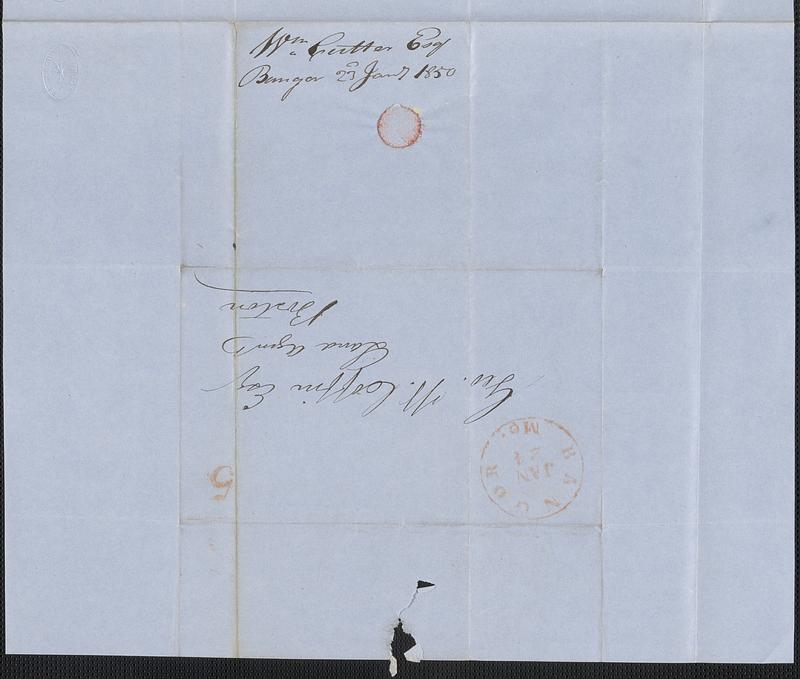 Wm Cutter Esq
Bangor 23 Jany 1850
Geo. W. Coffin Esqr
Land Agent
Boston
BANGOR
JAN
24
Me.
5